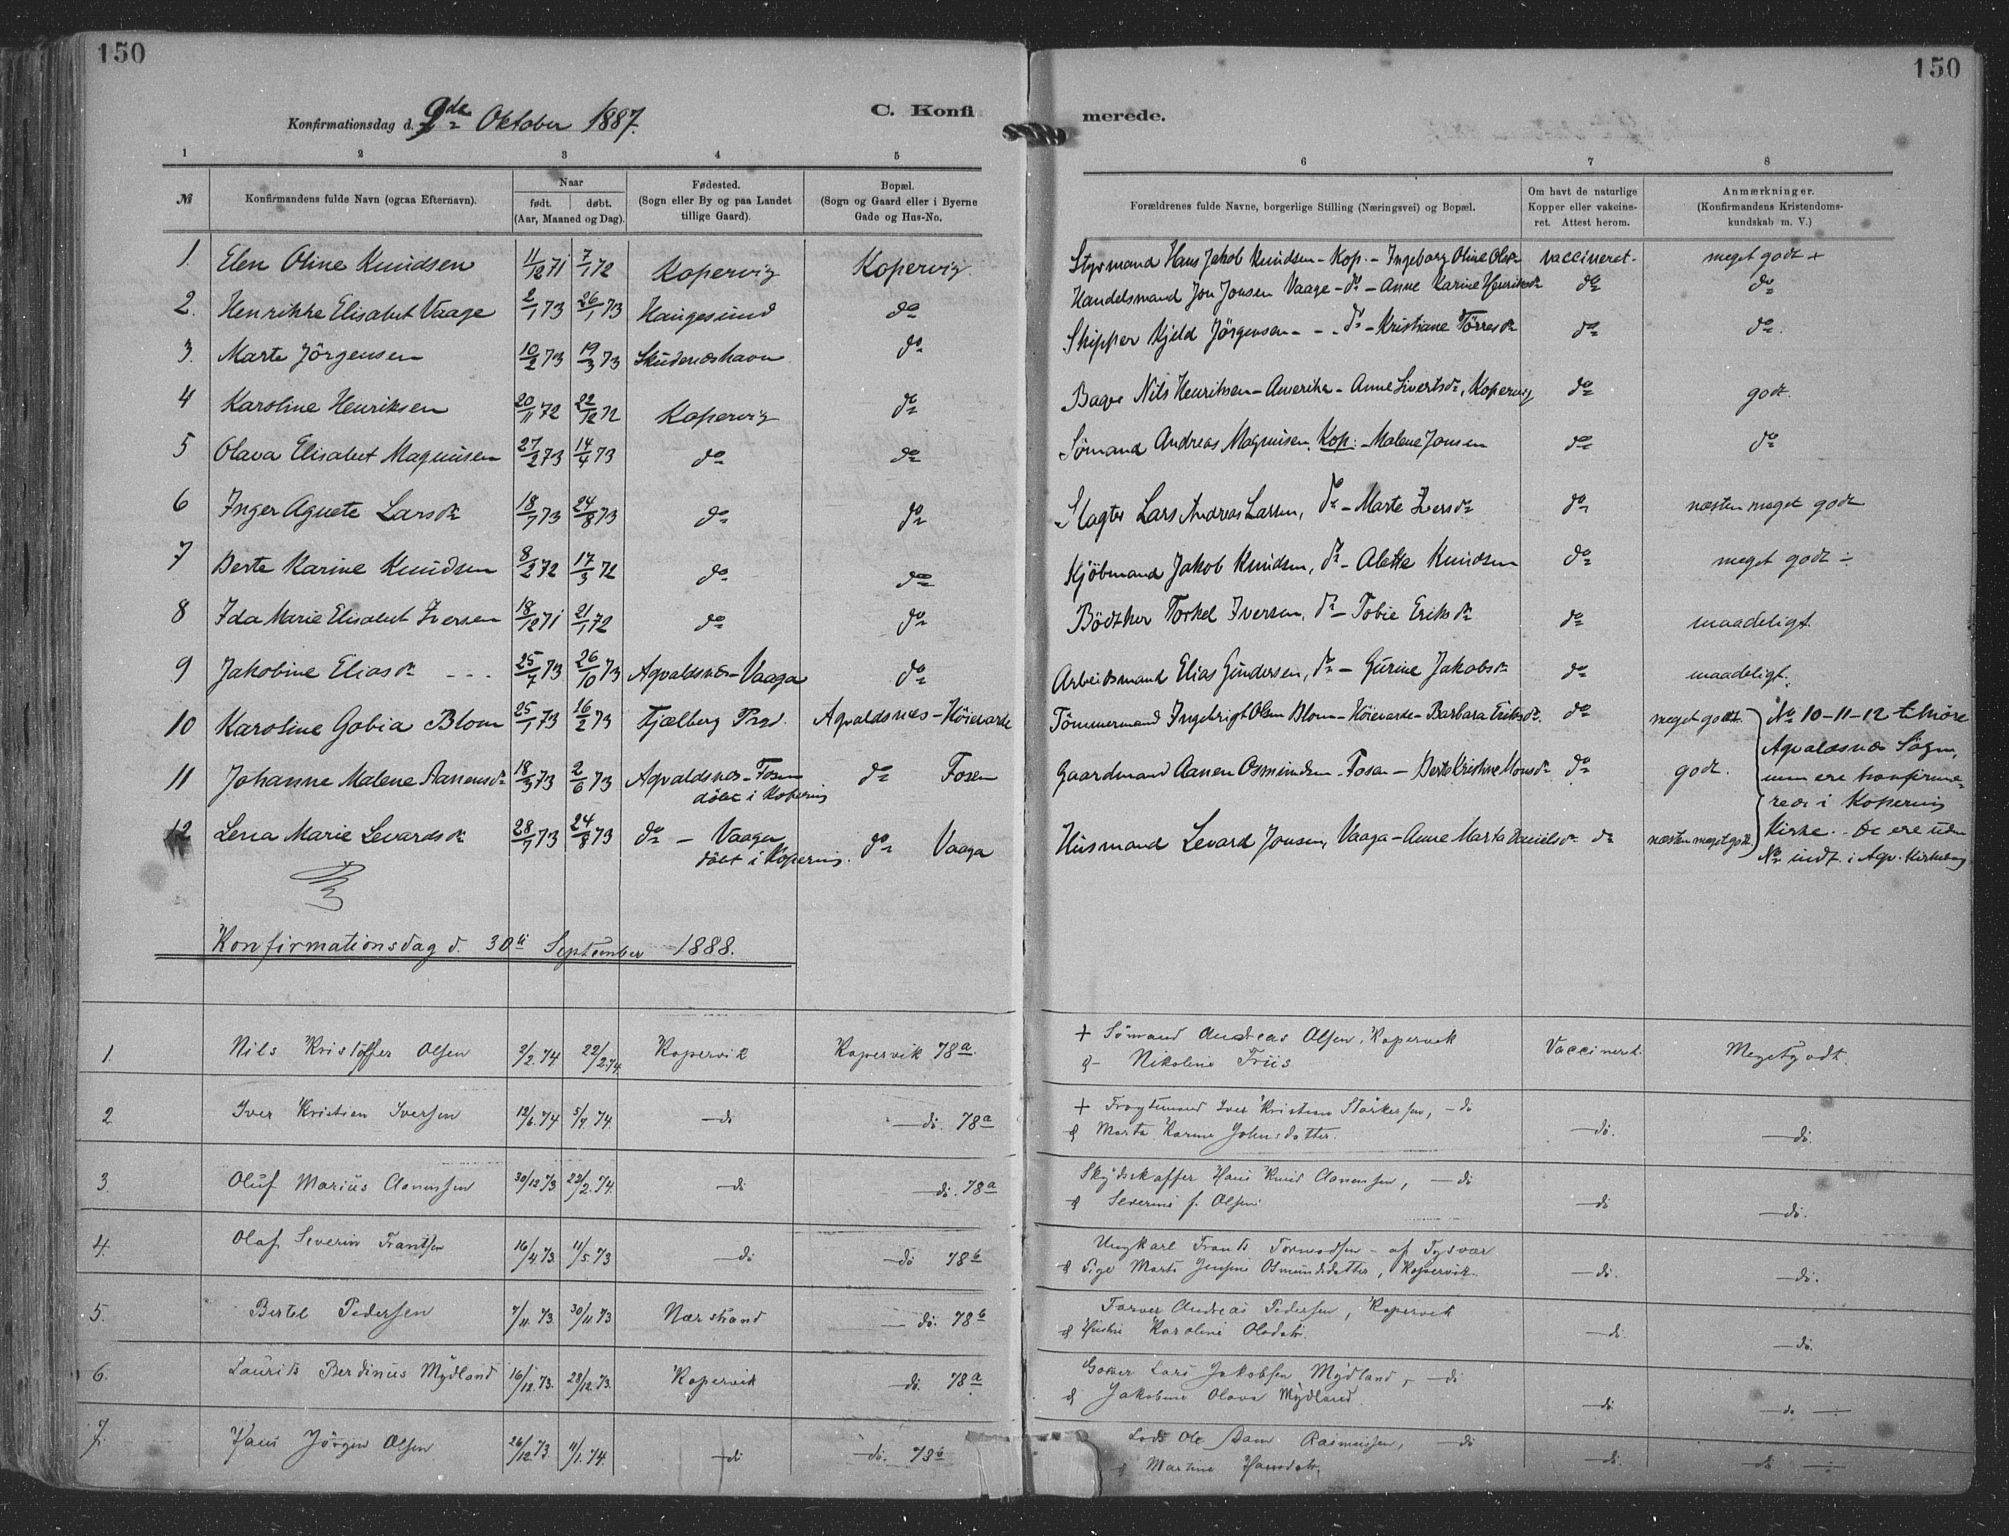 150
150
Konfirmationsdag d. 9de Oktober 1887.
C. Konfi
merede.
1 2 3 4 5 6 7 8
№ Konfirmandens fulde Navn (ogsaa Efternavn). Naar født. døbt. (Aar, Maaned og Dag). Fødested. (Sogn eller By og paa Landet tillige Gaard). Bopæl. (Sogn og Gaard eller i Byerne Gade og Hus-No. Forældrenes fulde Navne, borgerlige Stilling (Næringsvei) og Bopæl. Om havt de naturlige Kopper eller vakcineret. Attest herom. Anmærkninger. (Konfirmandens Kristendomskundskab m. V.)
1. Elen Oline Knudsen 11/12 71 7/1 72 Kopervig Kopervig Styrmand Hans Jakob Knudsen - Kop. - Ingeborg Oline Olsdr vaccineret. meget godt +
2. Henrikke Elisabet Vaage 2/1 73 26/1 73 Haugesund do Handelsmand Jon Jonsen Vaage - do - Anne Karine Henriksdr do do
3. Marte Jörgensen 10/2 73 19/3 73 Skudeneshavn do Skipper Kjeld Jörgensen - - do - Kristiane Törresdr do do.
4 Karoline Henriksen 20/11 72 22/12 72 Kopervig do Bager Nils Henriksen - Amerika - Anne Sivertsdr, Kopervig do godt.
5 Olava Elisabet Magnusen 27/2 73 14/4 73 do do Sømand Andreas Magnusen, Kop. - Malene Jonsen do do
6 Inger Agnete Larsdr 18/7 73 24/8 73 do do Slagter Lars Andreas Larsen, do - Marte Iversdr do næsten meget godt
7 Berte Karine Knudsen 8/2 72 17/3 72 do do Kjöbmand Jakob Knudsen, do - Alette Knudsen do meget godt ÷
8 Ida Marie Elisabet Iversen 18/12 71 21/1 72 do do Bödtker Torkel Iversen, do - Tobie Eriksdr do maadeligt.
9 Jakobine Eliasdr - - - 25/7 73 26/10 73 Agvaldsnes - Vaaga do Arbeidsmand Elias Gundersen, do - Gurine Jakobsdr do maadeligt.
10 Karoline Gobia Blom 25/1 73 16/2 73 Fjælberg Prgd. Agvaldsnes - Höievarde Tömmermand Ingebrigt Olsen Blom - Höievarde - Barbara Eriksdr. do meget godt.
11 Johanne Malene Aanensdr 18/3 73 2/6 73 Agvaldsnes - Fosen döbt i Kopervig do Fosen Gaardmand Aanen Osmundsen - Fosen - Berte Kristine Monsdr do godt.
12 Lena Marie Levardsdr 28/7 73 24/8 73 do - Vaaga döbt i Kopervig. do Vaaga Husmand Levard Jonsen, Vaaga - Anne Marta Danielsdr do næsten meget godt
No 10-11-12 tilhöre
Agvaldsnes Sogn,
men ere konfirme-
rede i Kopervig
Kirke. - De ere uden
No indf. i Agv. Kirkebog
Konfirmationsdag d. 30te September 1888.
1. Nils Kristoffer Olsen 2/2.74 22/2.74 Kopervik Kopervik 78a. + Sömand Andreas Olsen, Kopervik
& Nikoline Friis Vaccineret. Meget godt.
2. Iver Kristian Iversen 12/6.74 5/7.74. - do - do. 78a + Fragtmand Iver Kristian Störkersen, - do
& Marta Karine Johnsdatter. - do. - do.
3. Oluf Marius Aanensen 30/12 73 22/2.74. - do - do. 78a Skydsskaffer Hans Knud Aanensen, - do
& Severine f. Olsen - do - do.
4. Olaf Severin Frantsen 16/4.73. 11/5.73 - do - do 78b Ungkarl Frants Tormodsen - af Tysvær
& Pige Marte Jensine Osmundsdatter, Kopervik. - do. - do.
5. Bertel Pedersen 7/11.73. 30/11 73 Nærstrand - do. 78b Farver Andreas Pedersen, Kopervik
& Hustru Karoline Olsdatr. - do. - do.
6. Laurits Berdinus Mydland 16/12.73. 28/12.73. Kopervik - do. 78a Garver Lars Jakobsen Mydland, - do
& Jakobine Olava Mydland. - do. - do - ÷
7. Hans Jörgen Olsen 26/12 73. 11/1.74. - do - do. 78b Lods Ole Adam Rasmussen, - do
& Martine Hansdatr. - do. do ÷